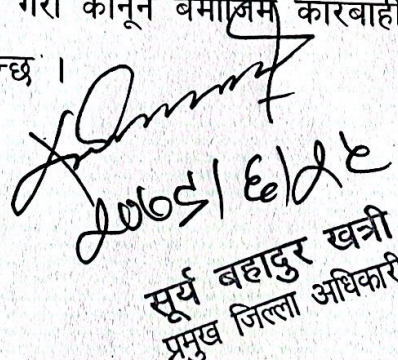 गरी कानून बमोजिम कारबाही
च्छ ।
२०७९।६।२५
सूर्य बहादुर खत्री
प्रमुख जिल्ला अधिकारी